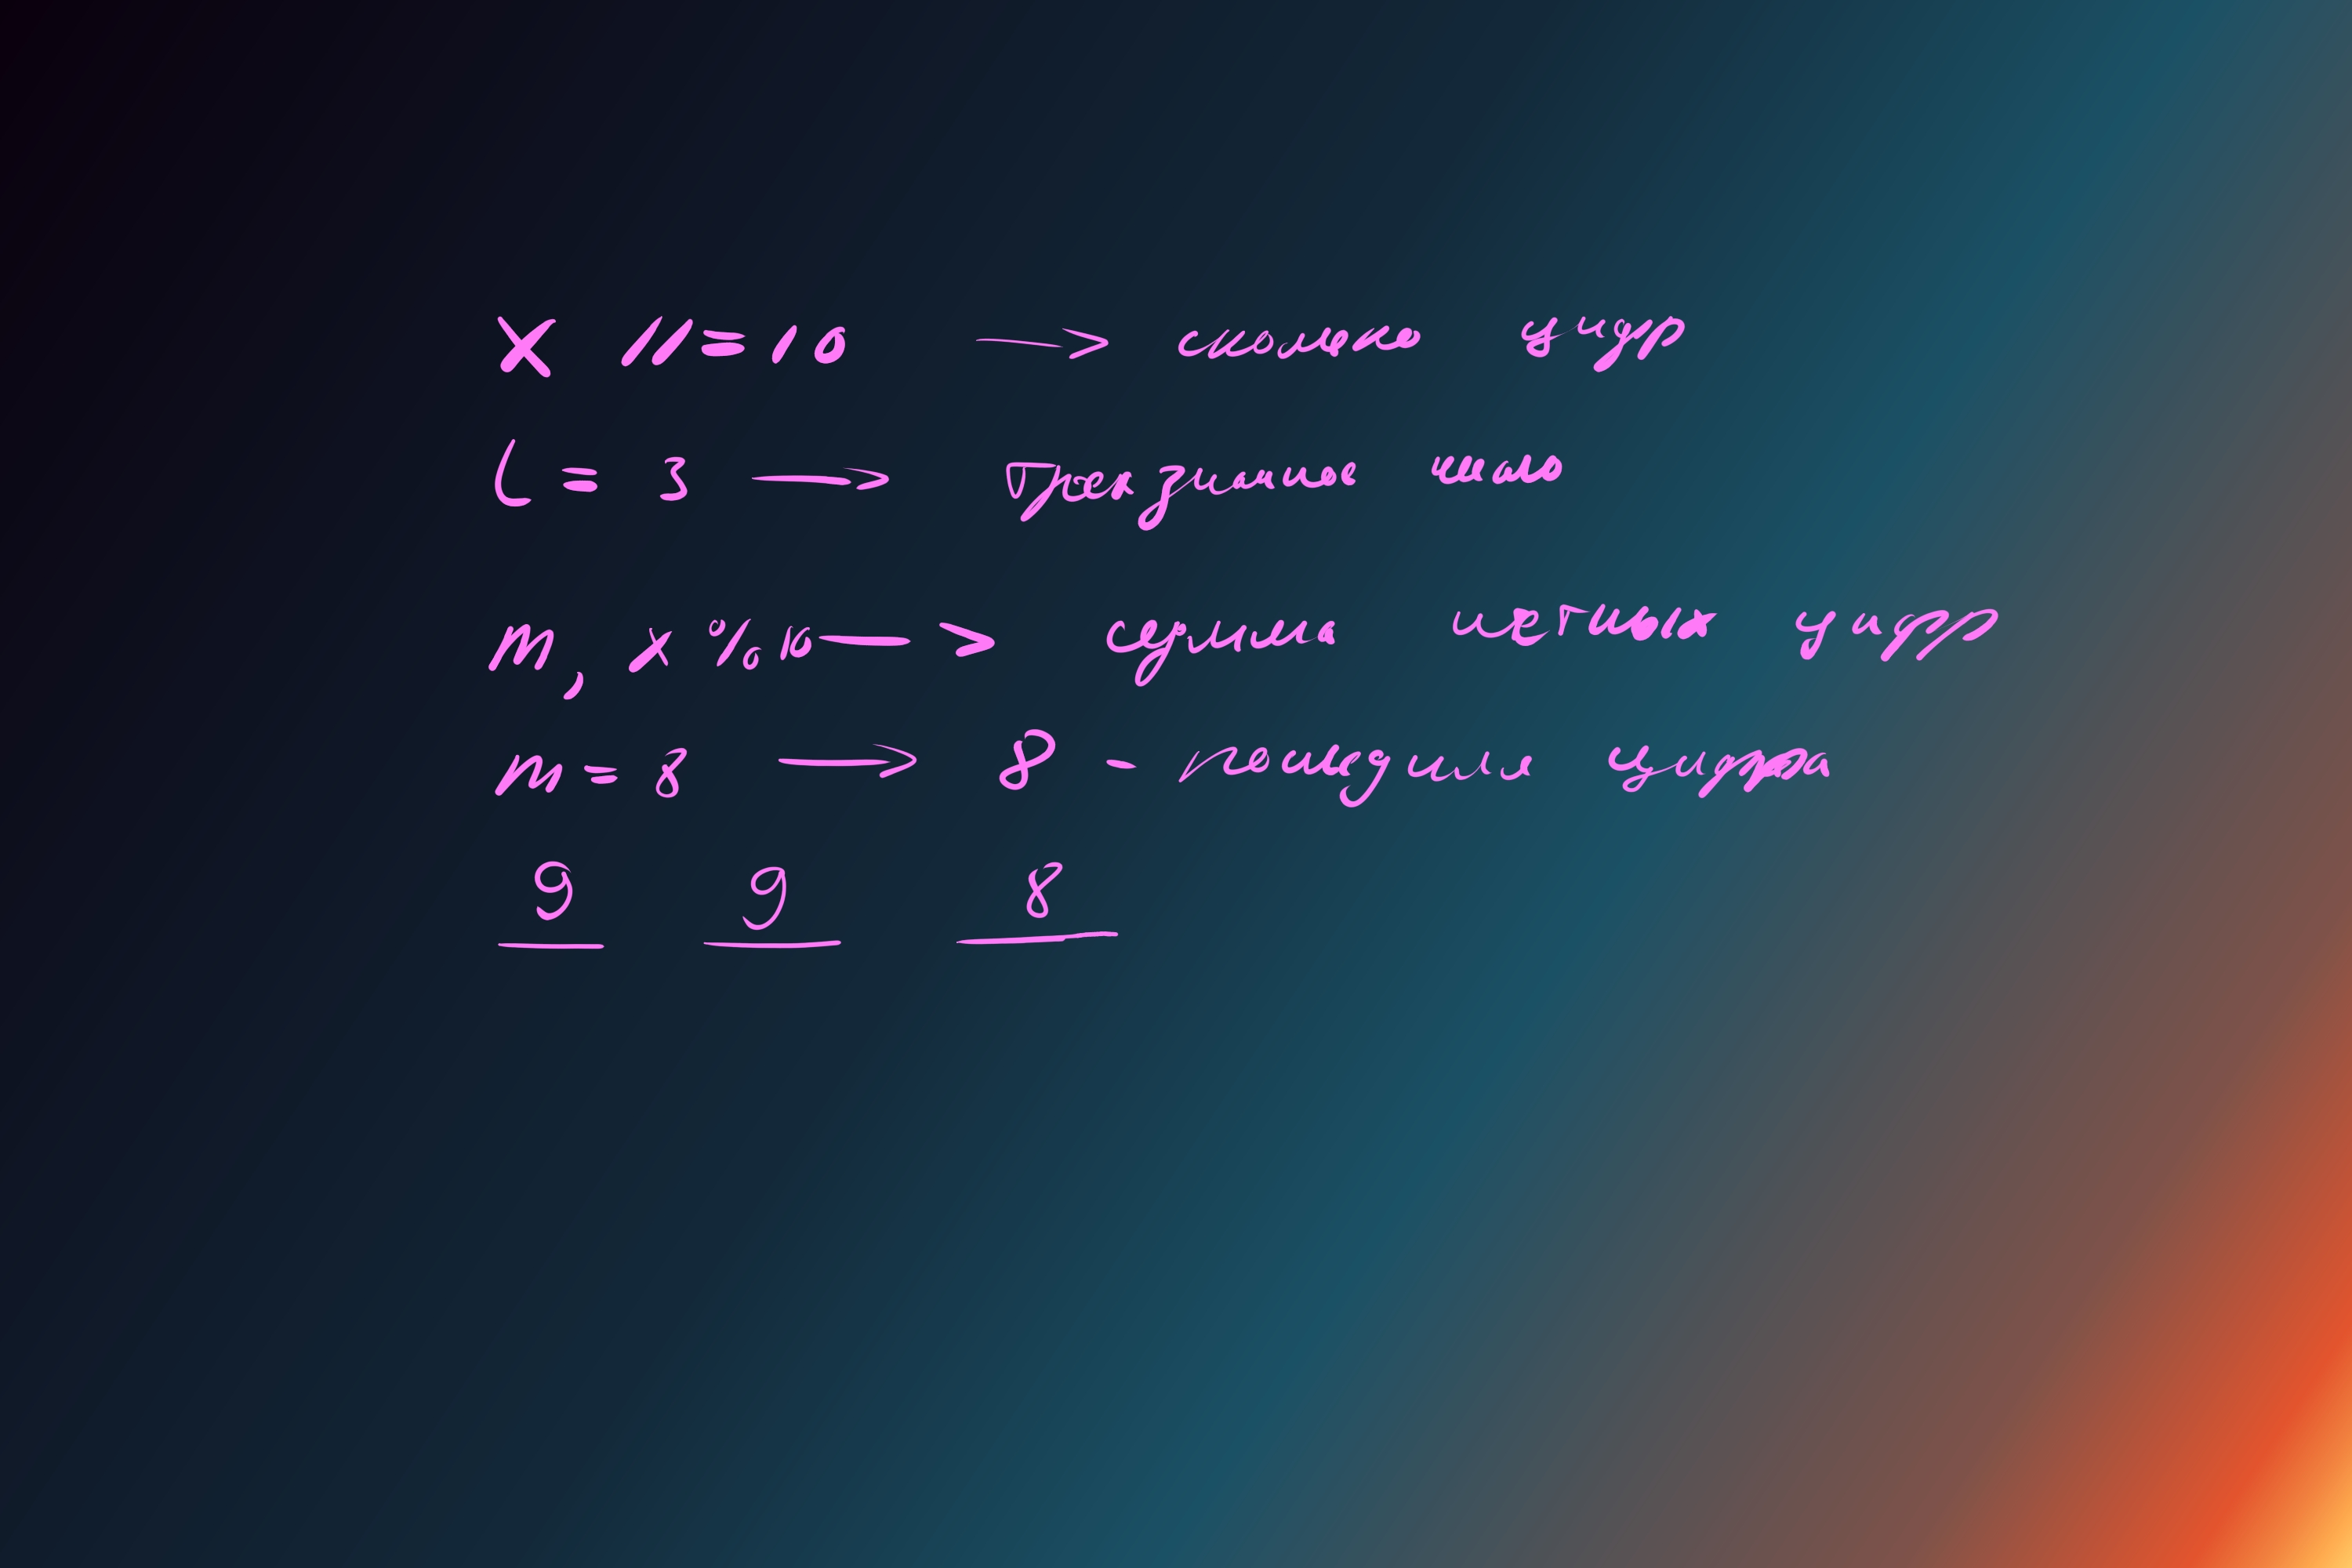 x //= 10 → сколько цифр
L = 3 → трехзначное число
m, x % 10 —> сумма четных цифр
m = 8 → 8 - последняя цифра
9 9 8